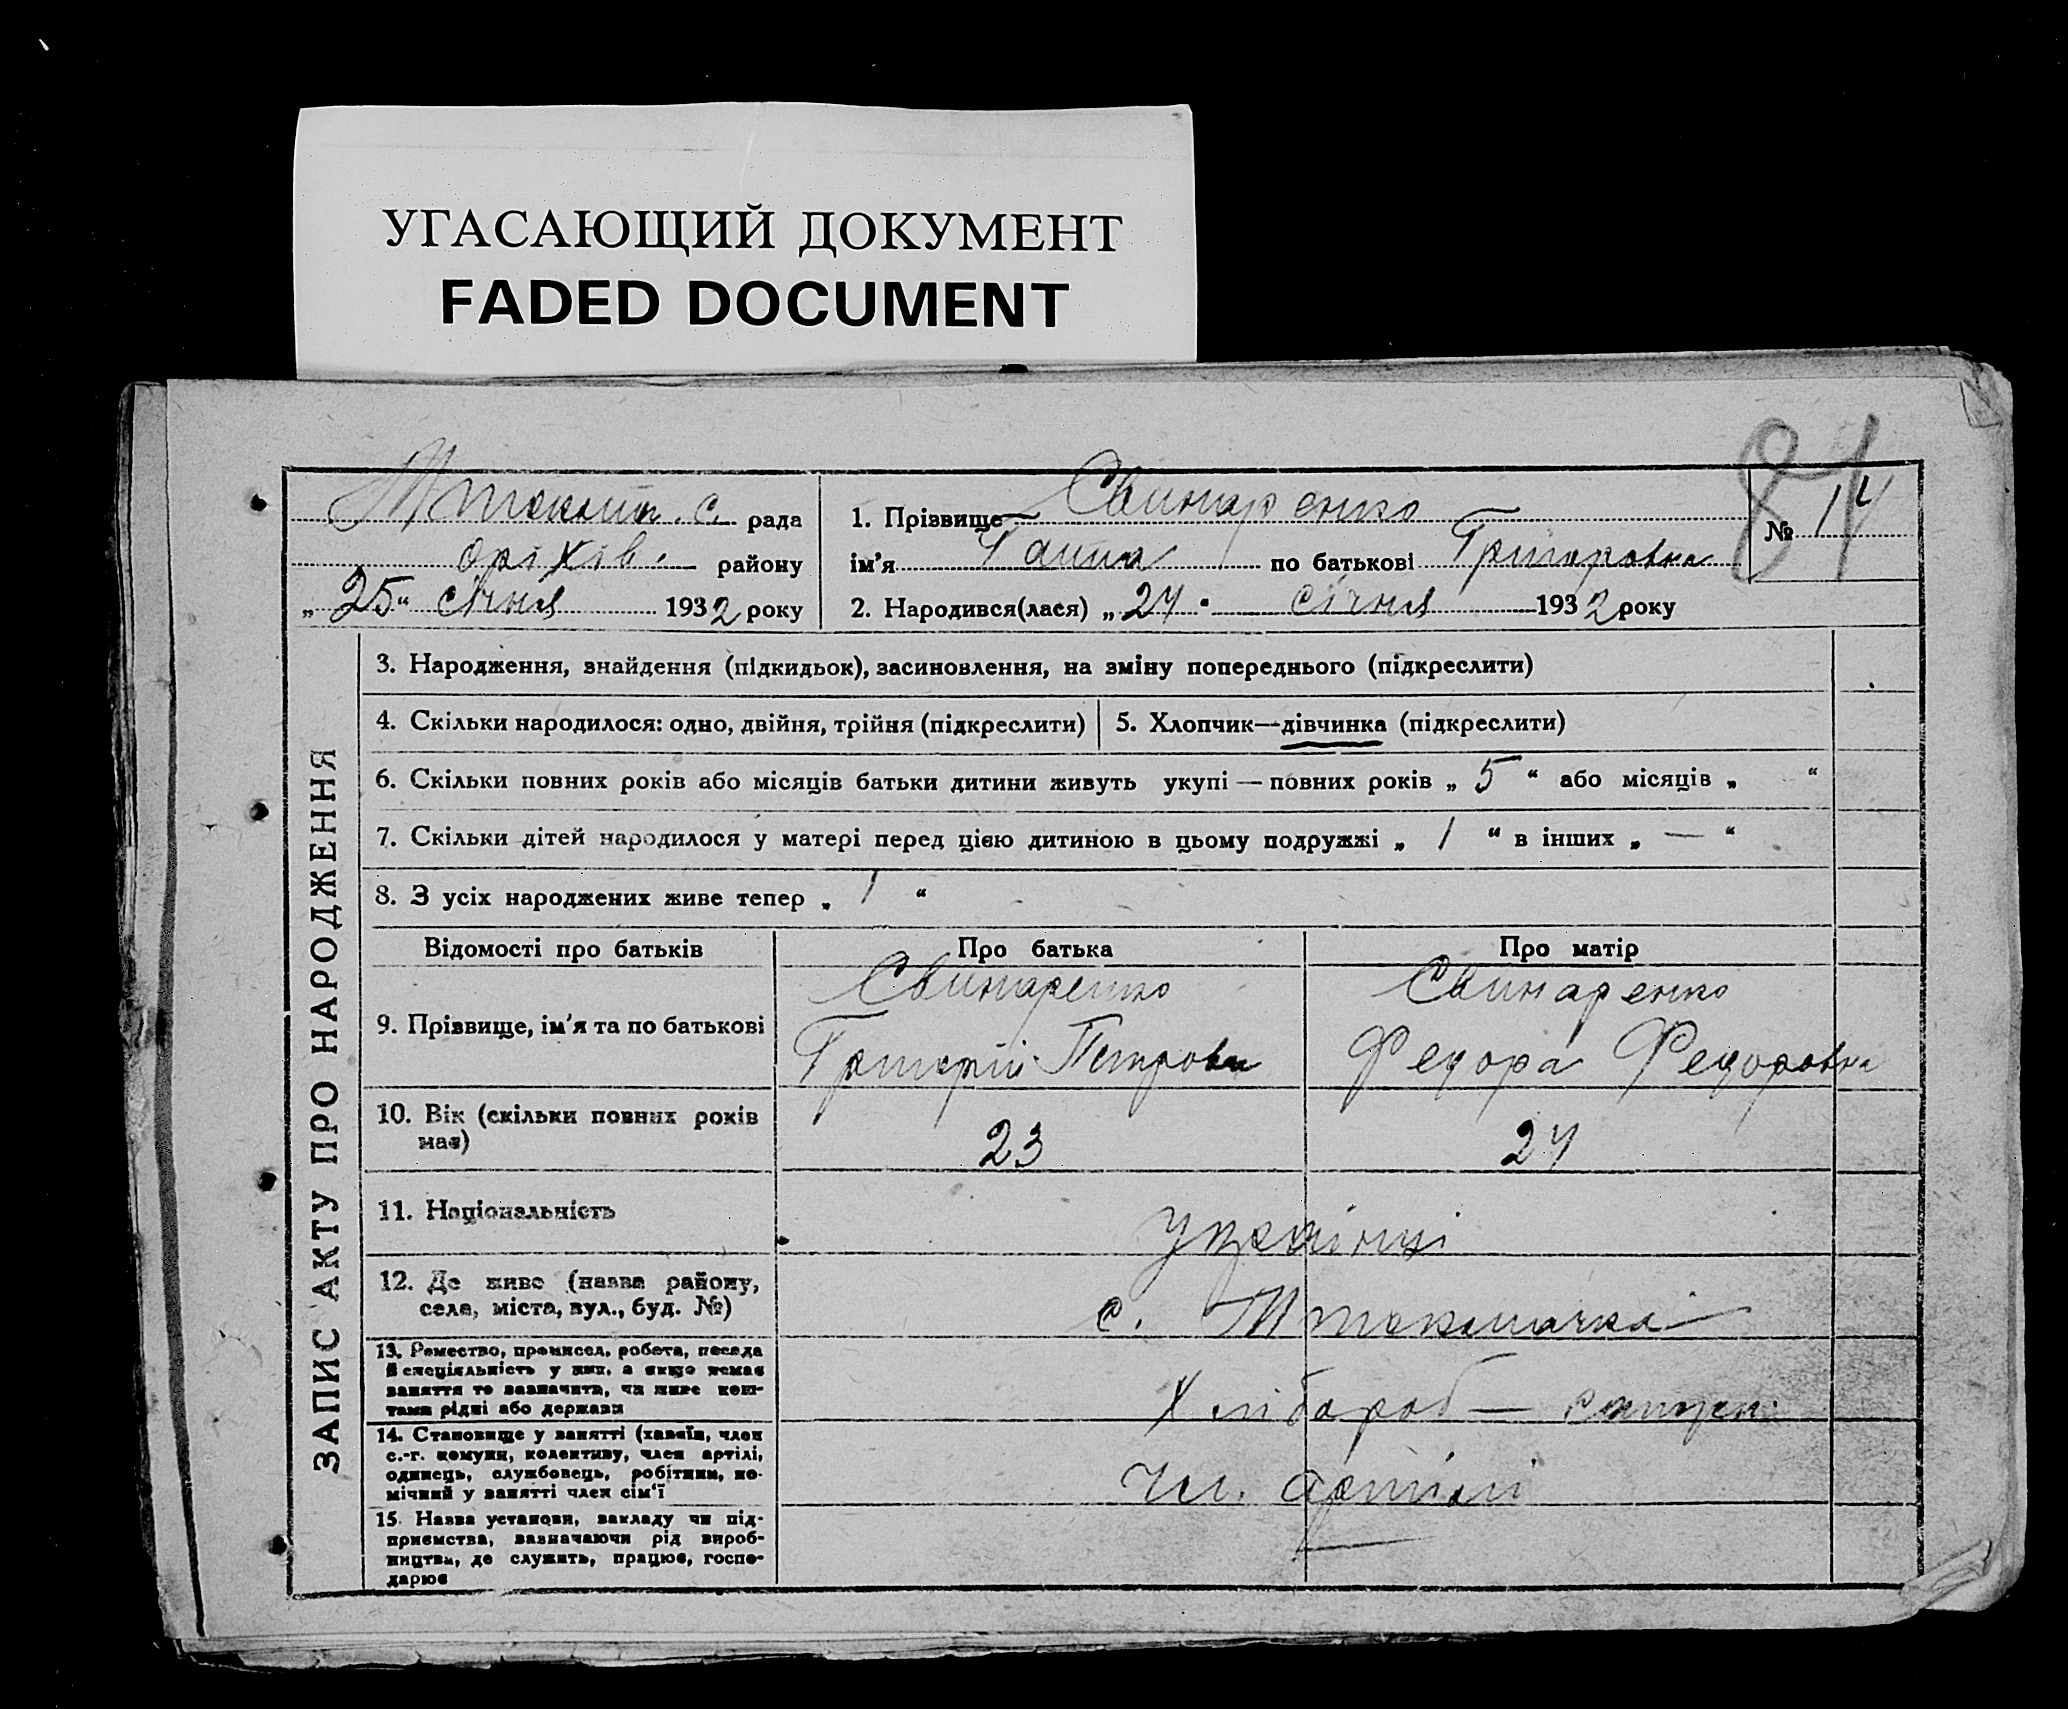 УГАСАЮЩИЙ ДОКУМЕНТ
FADED DOCUMENT
84
с. рада
оріхів. району
„25“ січня 1932 року
1. Прізвище Свинаренко
ім'я Ганна по батькові Григоровна
№ 14
2. Народився(лася) „24" січня 1932 року
ЗАПИС АКТУ ПРО НАРОДЖЕННЯ
3. Народження, знайдення (підкидьок), засиновлення, на зміну попереднього (підкреслити)
4. Скільки народилося: одно, двійня, трійня (підкреслити)
5. Хлопчик—дівчинка (підкреслити)
6. Скільки повних років або місяців батьки дитини живуть укупі — повних років „ 5 “ або місяців „ “
7. Скільки дітей народилося у матері перед цією дитиною в цьому подружжі „ 1 “ в інших „ — “
8. З усіх народжених живе тепер „ 1 “
Відомості про батьків
Про батька
Про матір
9. Прізвище, ім'я та по батькові
Свинаренко
Григорій Петрович
Свинаренко
Федора Федоровна
10. Вік (скільки повних років
має)
23
24
11. Національність
Українці
12. Де живе (назва району,
села, міста, вул., буд. №)
с.
13. Ремество, промисел, робота, посада
й спеціяльність у них, а якщо немає
заняття то зазначити, чи живе кош-
тами рідні або держави
Хлібороб —
14. Становище у занятті (хазяїн, член
с.-г. комуни, колективу, член артілі,
одинець, службовець, робітник, по-
мічний у занятті член сім'ї
Чл. артілі
15. Назва установи, закладу чи під-
приємства, зазначаючи рід вироб-
ництва, де служить, працює, госпо-
дарює